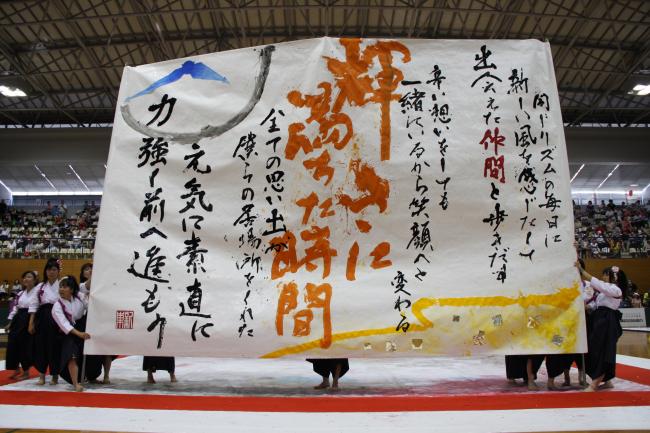 同じリズムの毎日に
新しい風を感じたくて
出会えた仲間と歩きだす
辛い想いをしても
一緒にいるから笑顔へと
変わる
輝きに
満ちた時間
全ての思い出が
僕らの居場所をくれた
元気に素直に
力強く前へ進もう